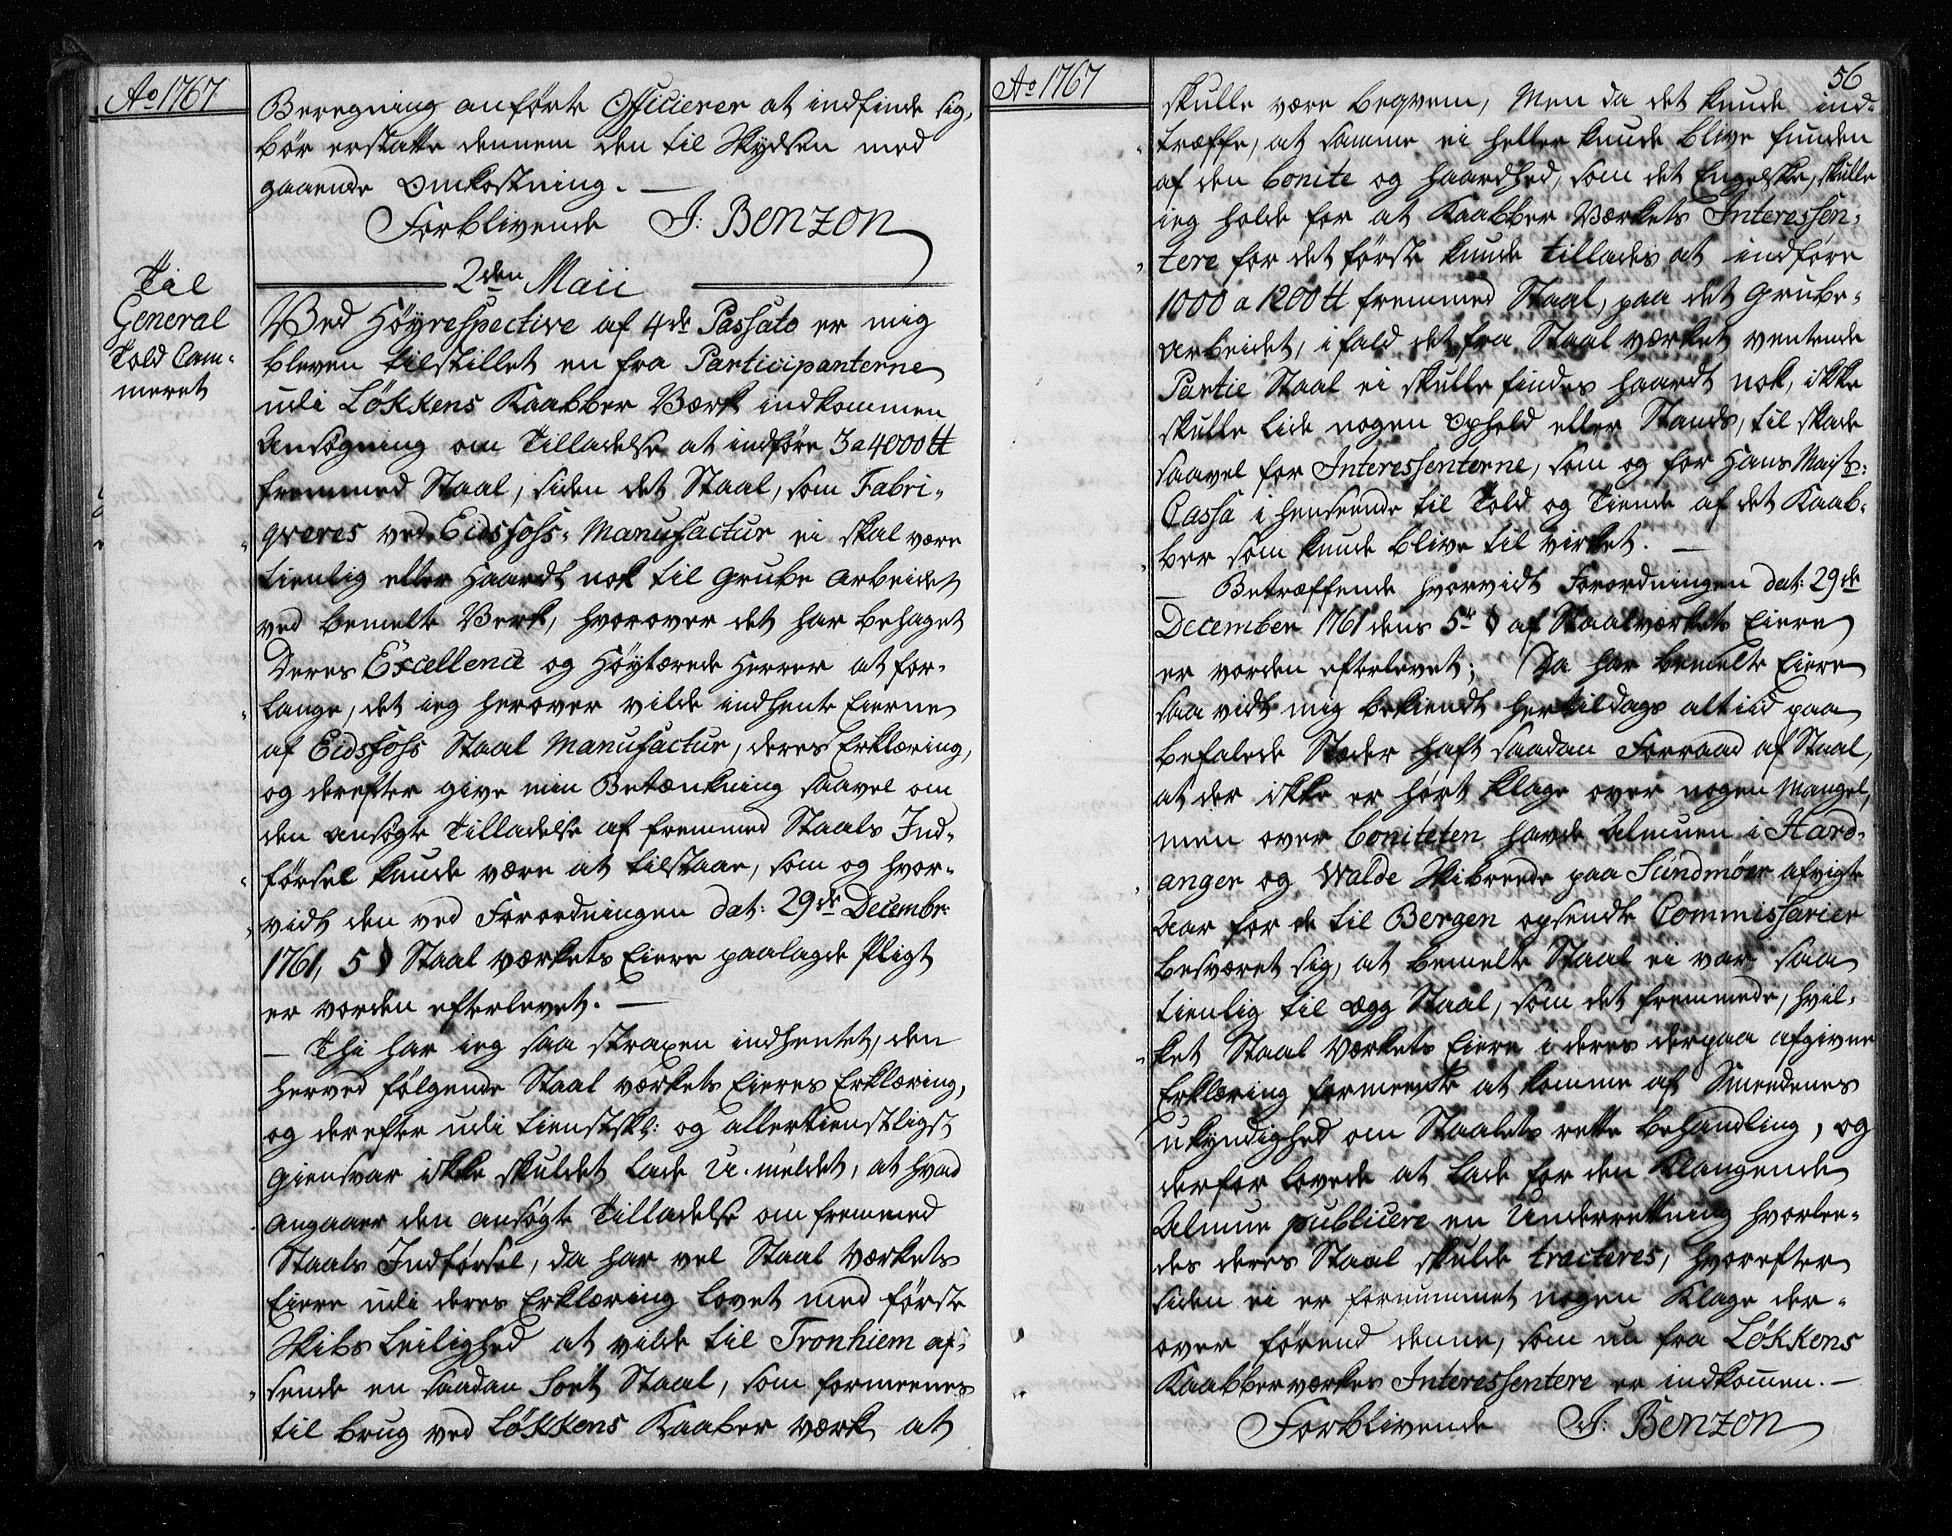 Ao 1767
Beregning anførte Officierer at indfinde sig,
bør erstatte dennem den til Skydsen med
gaaende Omkostning. —
Forblivende J: Benzon
2den Maii
Til
General
Told Cam-
meret
Ved Høyrespective af 4de Passato er mig
bleven tilstillet en fra Participanterne
udi Løkkens Kaabber Værk indkommen
Ansøgning om Tilladelse at indføre 3 a 4000 ℔
fremmed Staal, siden det Staal, som Fabri-
qveres ved Eidsfoss- Manufactur ei skal være
tienlig eller haardt nok til Grube Arbeidet
ved bemelte Verk, hvorover det har behaget
Deres Excellence og Høytærede Herrer at for-
lange, det ieg herover vilde indhente Eierne
af Eidsfoss Staal Manufactur, deres Erklæring,
og derefter give min Betænkning saavel om
den ansøgte Tilladelse af fremmed Staals Ind-
førsel kunde være at tilstaae, som og hvor-
vidt den ved Forordningen dat: 29de Decembr:
1761, 5 § Staal værkets Eiere paalagde Pligt
er vorden efterlevet. —
— Thi har ieg saa straxen indhentet, den
herved følgende Staal værkets Eieres Erklæring,
og derefter udi tienstskl: og allertienstligst
giensvar ikke skuldet lade U-meldet, at hvad
angaaer den ansøgte Tilladelse om fremmed
Staals Indførsel, da har vel Staal Værkets
Eiere udi deres Erklæring lovet med første
Skibs Leilighed at vilde til Tronhiem af-
sende en saadan Sort Staal, som formeenes
til brug ved Løkkens Kaaber værk at
Ao 1767
56
skulle være beqvem, Men da det kunde ind-
træffe, at samme ei heller kunde blive funden
af den bonite og haardhed, som det Engelske, skulle
ieg holde for at Kaabber Værkets Interessen-
tere for det første kunde tillades at indføre
1000 a 1200 ℔ fremmed Staal, paa det Grube-
Arbeidet, i fald det fra Staal værket ventende
Partie Staal ei skulle findes haardt nok, ikke
skulle lide nogen Ophold eller Stands, til skade
saavel for Interessenterne, som og for Hans Maits:
Cassa i henseende til Told og Tiende af det Kaab-
ber som kunde blive til virket. —
— Betræffende hvorvidt Forordningen dat: 29de
December 1761 dens 5te § af Staalværkets Eiere
er vorden efterlevet; Da har bemelte Eiere
saa vidt mig bekiendt hertildags altiid paa
befalede Stæder haft saadan Forraad af Staal,
at der ikke er hørt klage over nogen Mangel,
men over boniteten havde Almuen i Hard-
anger og Walde Skibrede paa Sündmöer afvigte
Aar for de til Bergen opsendte Commissarier
besværet sig, at bemelte Staal ei var saa
tienlig til Egg Staal, som det fremmede, hvil-
ket Staal Værkets Eiere i deres derpaa afgivne
Erklæring formeente at komme af Smeedenes
ukyndighed om Staalets rette behandling, og
derfor lovede at lade for den Klangende
Almue publicere en Underretning hvorlee-
des deres Staal skulde tracteres, hvorefter
siden ei er fornummet nogen Klage der-
over førend denne, som nu fra Løkkens
Kaabberværkes Interessentere er indkom̄en. —
Forblivende J: Benzon